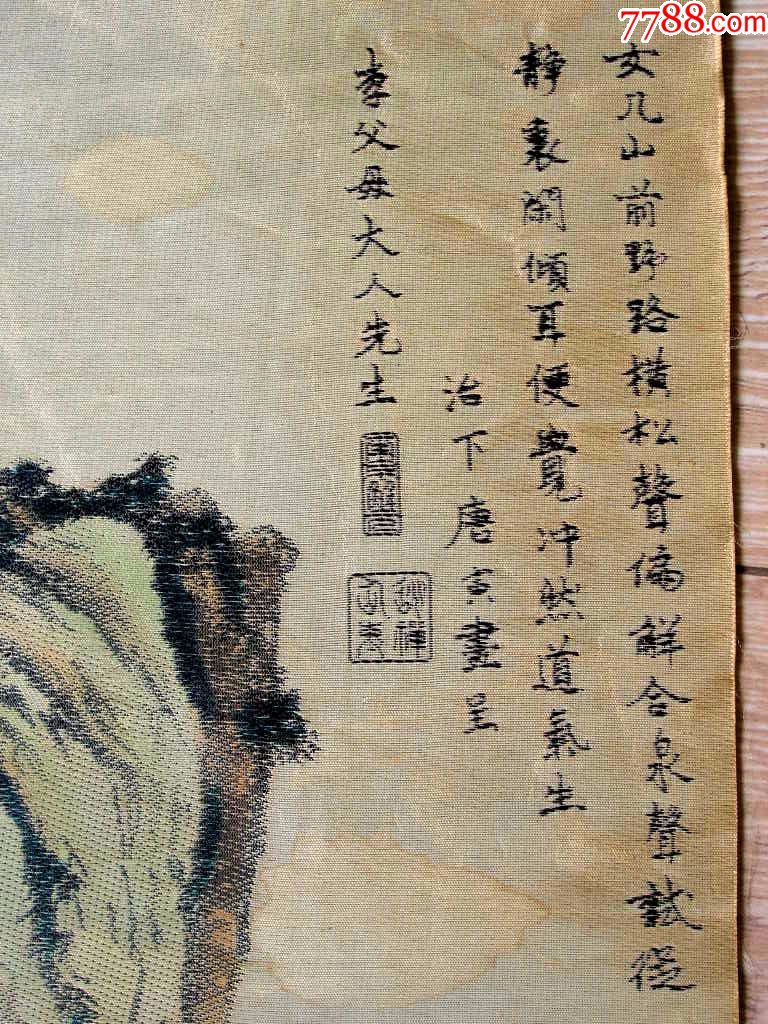 7788.com
女几山前野路横松聲偏解合泉聲試從
静裏閑傾耳便覺冲然道氣生
治下唐寅畫呈
李父母大人先生